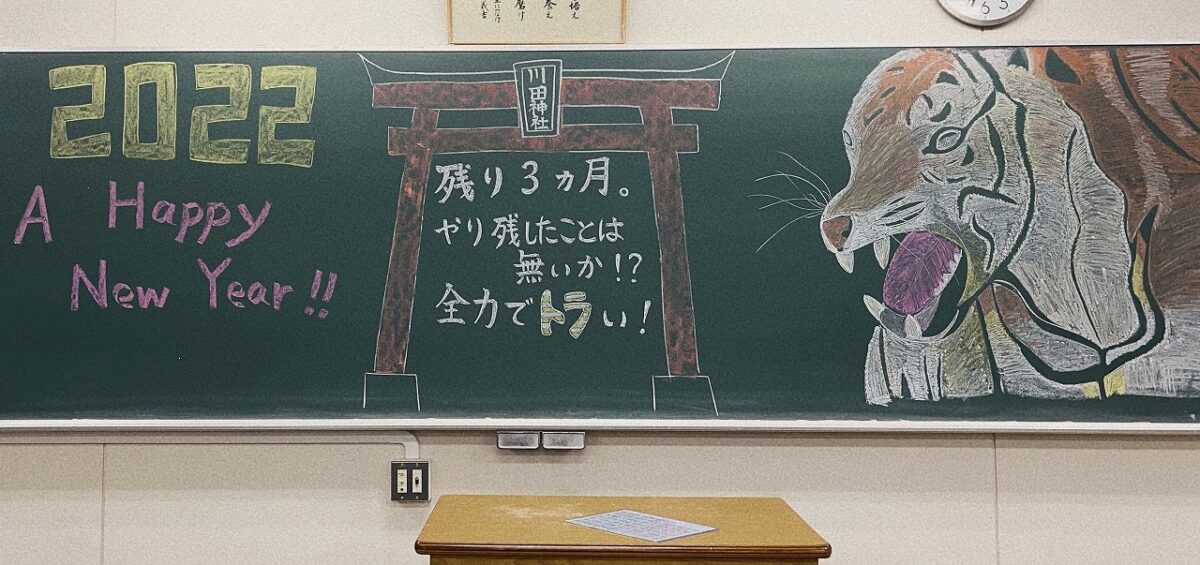 2022
A Happy
New Year!!
川田神社
残り3ヵ月。
やり残したことは
無いか!?
全力でトラい!